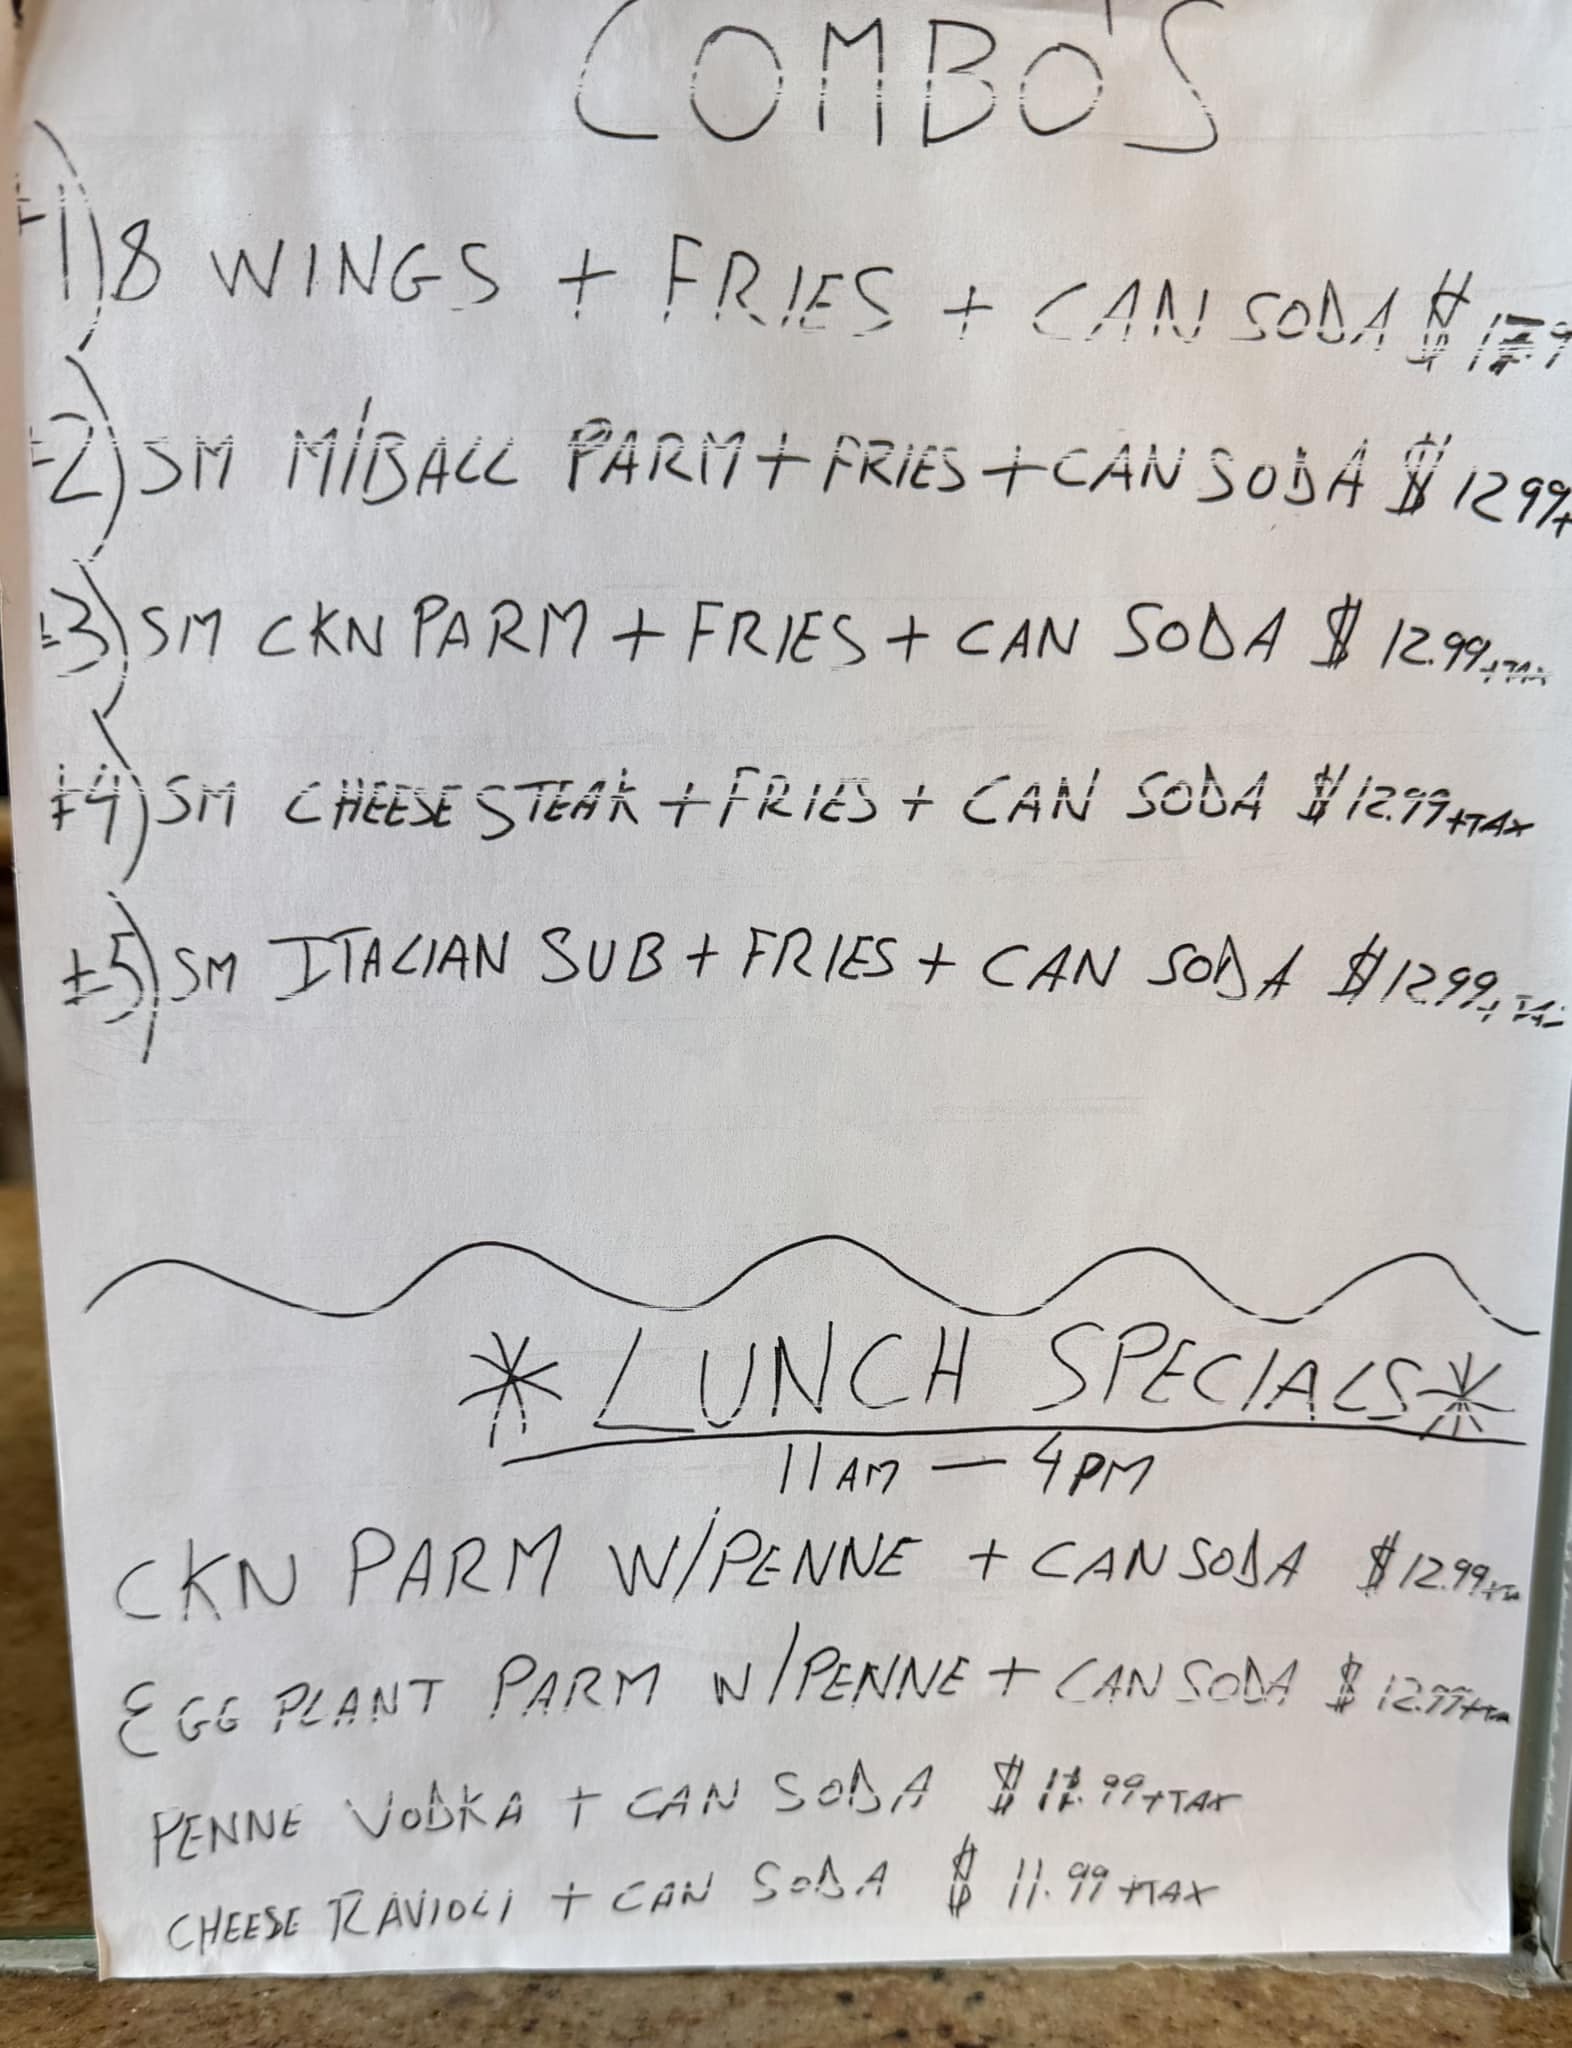 COMBO'S
#1) 8 WINGS + FRIES + CAN SODA
#2) SM M/BALL PARM + FRIES + CAN SODA $12.99+
#3) SM CKN PARM + FRIES + CAN SODA $12.99 +TAX
#4) SM CHEESE STEAK + FRIES + CAN SODA $12.99 +TAX
#5) SM ITALIAN SUB + FRIES + CAN SODA $12.99 + TAX
* LUNCH SPECIALS *
11AM — 4PM
CKN PARM W/PENNE + CAN SODA $12.99
EGG PLANT PARM W/PENNE + CAN SODA $12.99
PENNE VODKA + CAN SODA +TAX
CHEESE RAVIOLI + CAN SODA $11.99 +TAX